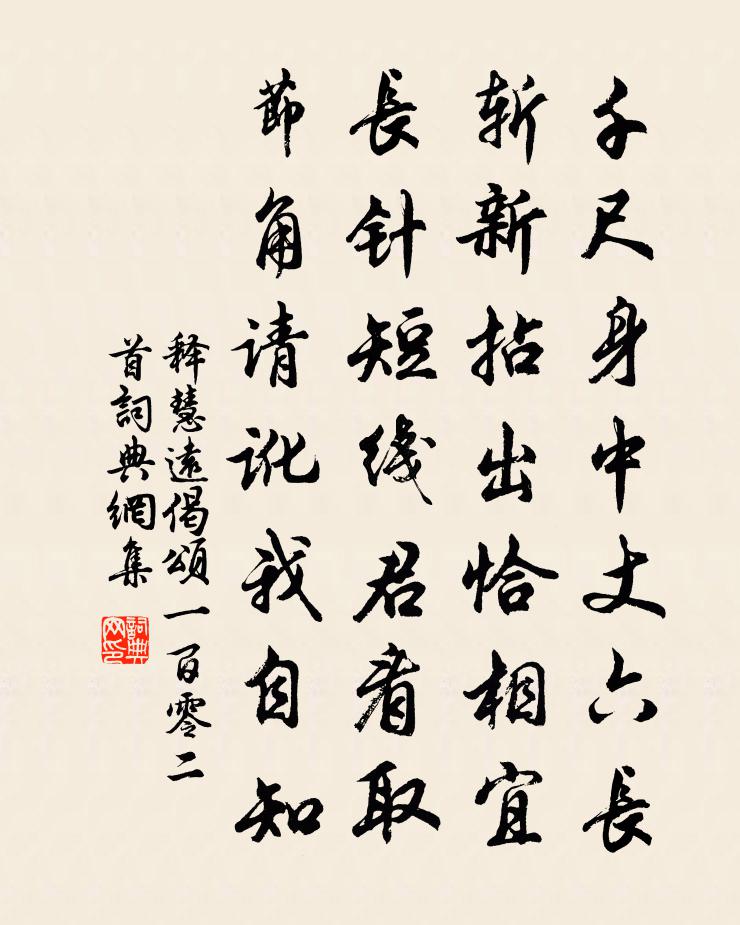 千尺身中丈六長
斩新拈出恰相宜
長针短线君看取
節角请讹我自知
释慧遠偈頌一百零二
首詞典網集
詞典網印